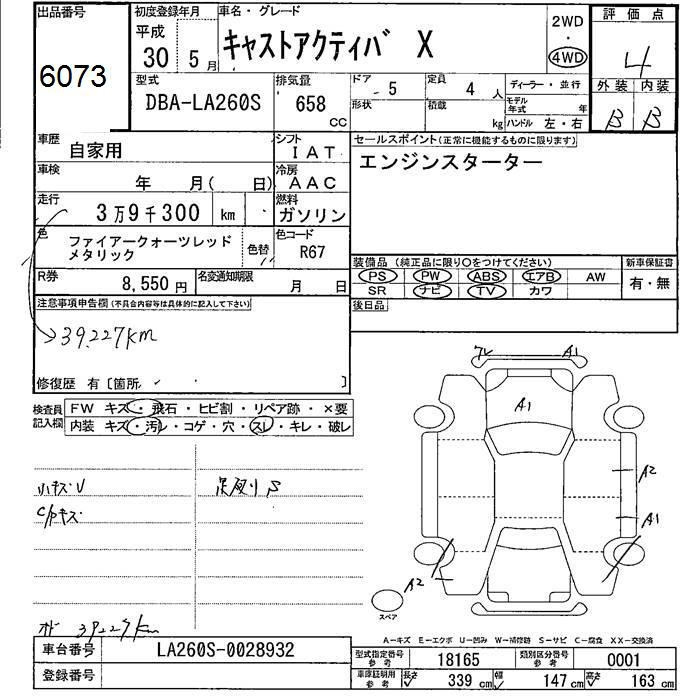 出品番号
6073
初度登録年月
平成
30 5月
車名・グレード
キャストアクティバ X
2WD
・
4WD
評価点
4
外装 内装
B B
型式
DBA-LA260S
排気量
658
CC
ドア
5
定員
4 人
形状
積載
kg
ディーラー・並行
モデル年式 年
ハンドル 左・右
車歴
自家用
シフト
IAT
車検
年 月( 日)
冷房
AAC
走行
3万9千300 km
燃料
ガソリン
色
ファイアークォーツレッド
メタリック
色替
色コード
R67
R券
8,550円
名変通知期限
月 日
セールスポイント(正常に機能するものに限ります)
エンジンスターター
装備品 (純正品に限り○をつけてください)
PS PW ABS エアB AW
SR ナビ TV カワ
新車保証書
有・無
後日品
注意事項申告欄(不具合内容等は具体的に記入して下さい)
39.227km
修復歴 有〔箇所 〕
検査員
記入欄
FW キズ・飛石・ヒビ割・リペア跡・×要
内装 キズ・汚レ・コゲ・穴・スレ・キレ・破レ
小キズU
C/Pキズ
足廻りS
オド 39.227km
ワレ A1
A1
A2
A1
A2
スペア
A-キズ E-エクボ U-凹み W-補修跡 S-サビ C-腐食 XX-交換済
車台番号
LA260S-0028932
登録番号
型式指定番号
参考
18165
類別区分番号
参考
0001
車庫証明用
参考
長さ
339 cm
幅
147 cm
高さ
163 cm